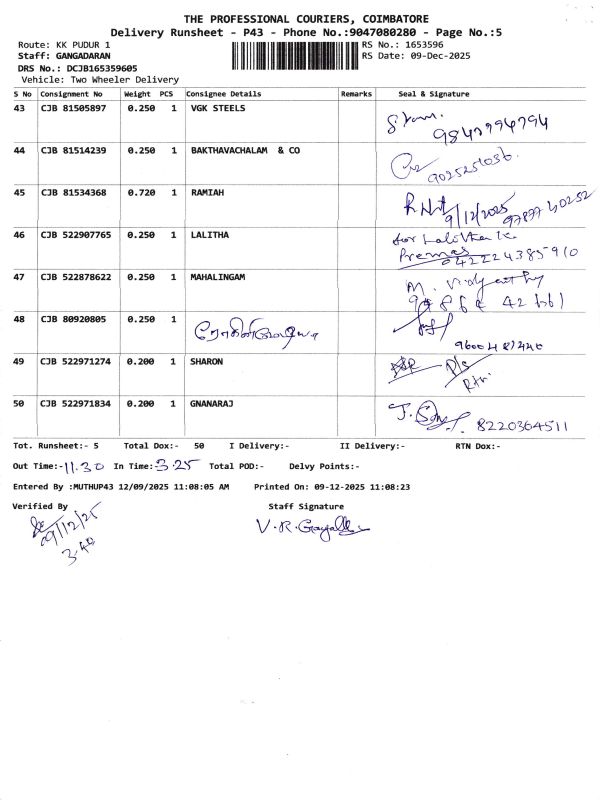 THE PROFESSIONAL COURIERS, COIMBATORE
Delivery Runsheet - P43 - Phone No.:9047080280 - Page No.:5
Route: KK PUDUR 1 RS No.: 1653596
Staff: GANGADARAN RS Date: 09-Dec-2025
DRS No.: DCJB165359605
Vehicle: Two Wheeler Delivery
S No Consignment No Weight PCS Consignee Details Remarks Seal & Signature
43 CJB 81505897 0.250 1 VGK STEELS
44 CJB 81514239 0.250 1 BAKTHAVACHALAM & CO
45 CJB 81534368 0.720 1 RAMIAH
9/12/2025
46 CJB 522907765 0.250 1 LALITHA
for Lalitha
04222438590
47 CJB 522878622 0.250 1 MAHALINGAM
48 CJB 80920805 0.250 1
49 CJB 522971274 0.200 1 SHARON
50 CJB 522971834 0.200 1 GNANARAJ
8220364511
Tot. Runsheet:- 5 Total Dox:- 50 I Delivery:- II Delivery:- RTN Dox:-
Out Time:-11.30 In Time:-3.25 Total POD:- Delvy Points:-
Entered By :MUTHUP43 12/09/2025 11:08:05 AM Printed On: 09-12-2025 11:08:23
Verified By Staff Signature
09/12/25
3.40